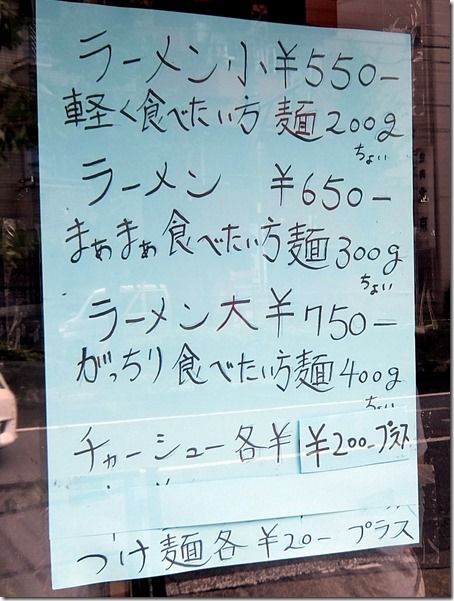 ラーメン小¥550-
軽く食べたい方 麺200g
ちょい
ラーメン ¥650-
まぁまぁ食べたい方麺300g
ちょい
ラーメン大¥750-
がっちり食べたい方麺400g
ちょい
チャーシュー各¥ ¥200-プラス
つけ麺各¥20-プラス